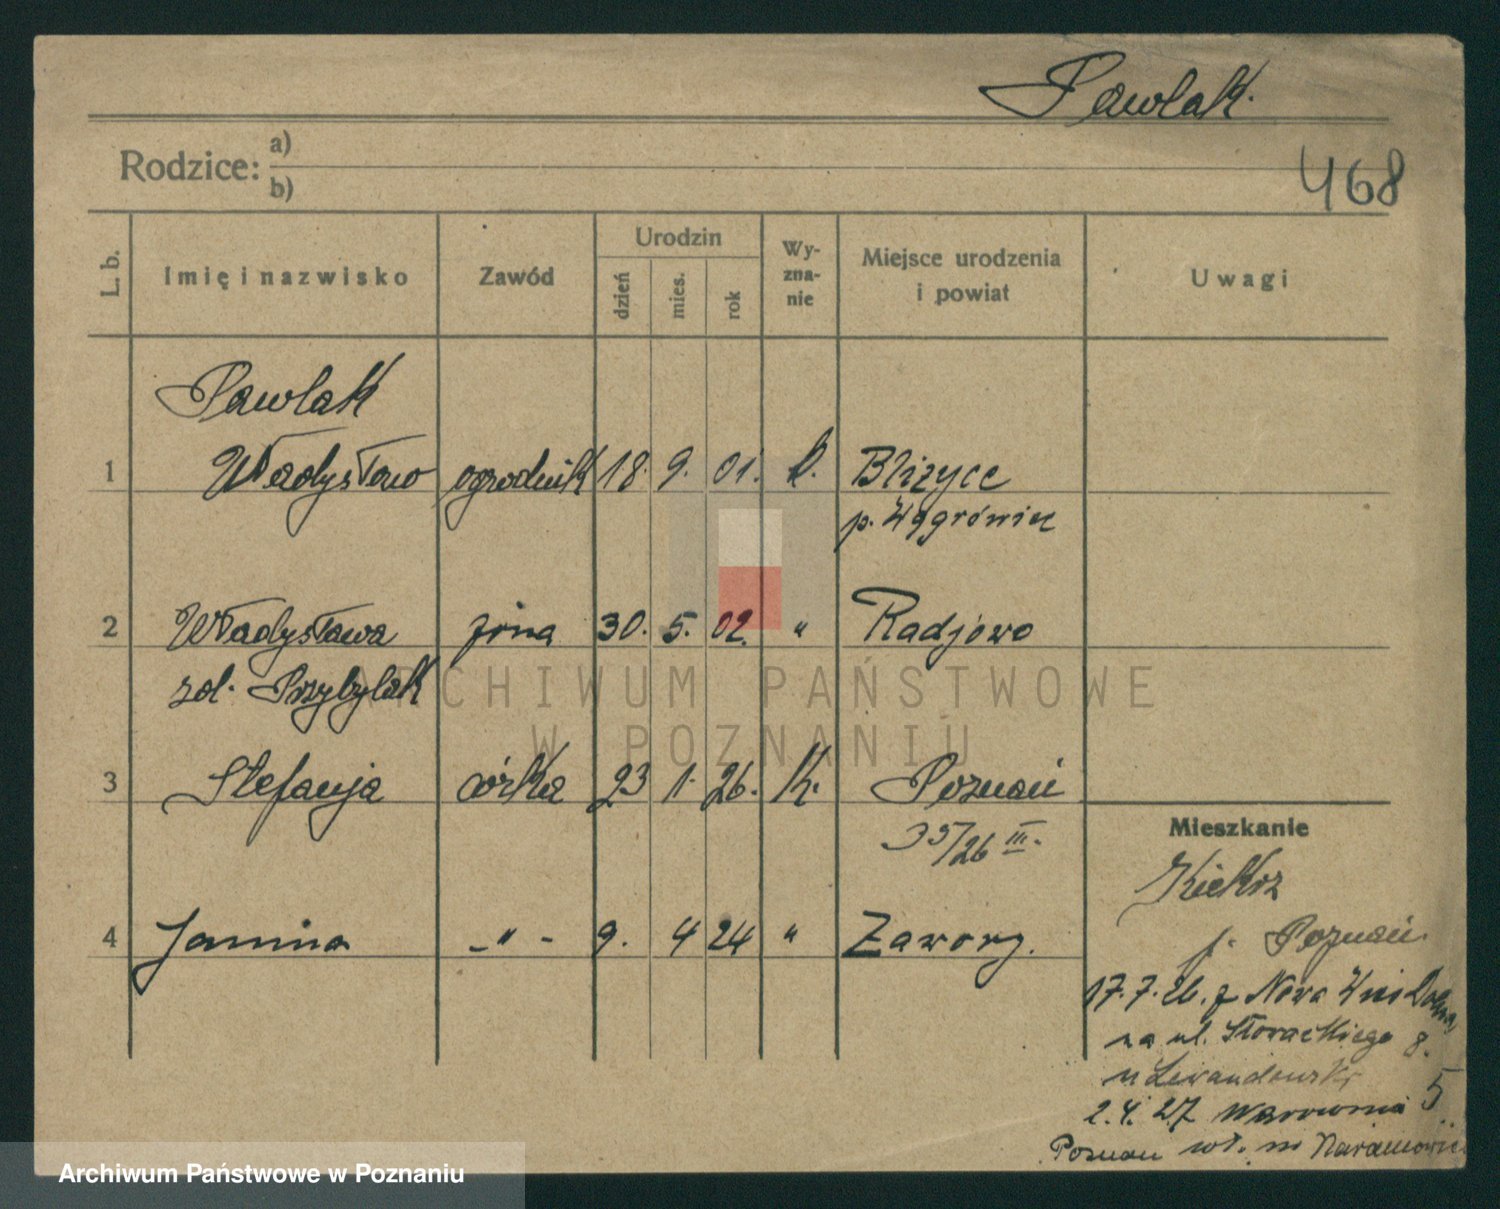 Pawlak.
Rodzice: a)
b)
468
L. b.
Imię i nazwisko
Zawód
Urodzin
dzień
mies.
rok
Wy-
zna-
nie
Miejsce urodzenia
i powiat
Uwagi
Pawlak
1 Władysław ogrodnik 18. 9. 01. k. Bliżyce
p. Wągrówiec
2 Władysława żona 30. 5. 02. " Radjowo
zd. Przybylak
3 Stefanja córka 23 1. 26. K. Poznań
35/26 III.
4 Janina -"- 9. 4 24 " Zawory.
Mieszkanie
Kiekrz
p. Poznań.
17.7.26. z Nowa Wieś Dolna,
na ul. Słowackiego 8.
u Lewandowski
2.4.27 Warownia 5
Poznań
ARCHIWUM PAŃSTWOWE
W POZNANIU
Archiwum Państwowe w Poznaniu